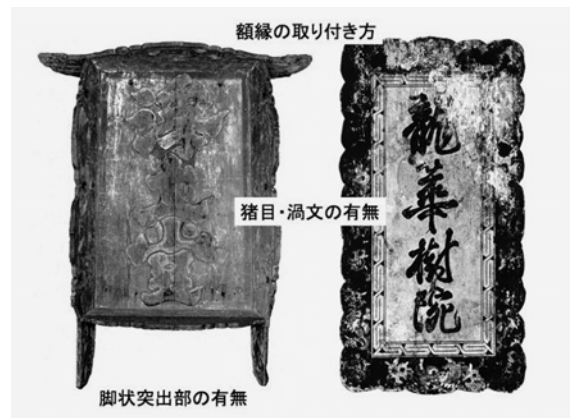 額縁の取り付き方
猪目・渦文の有無
龍華樹院
脚状突出部の有無